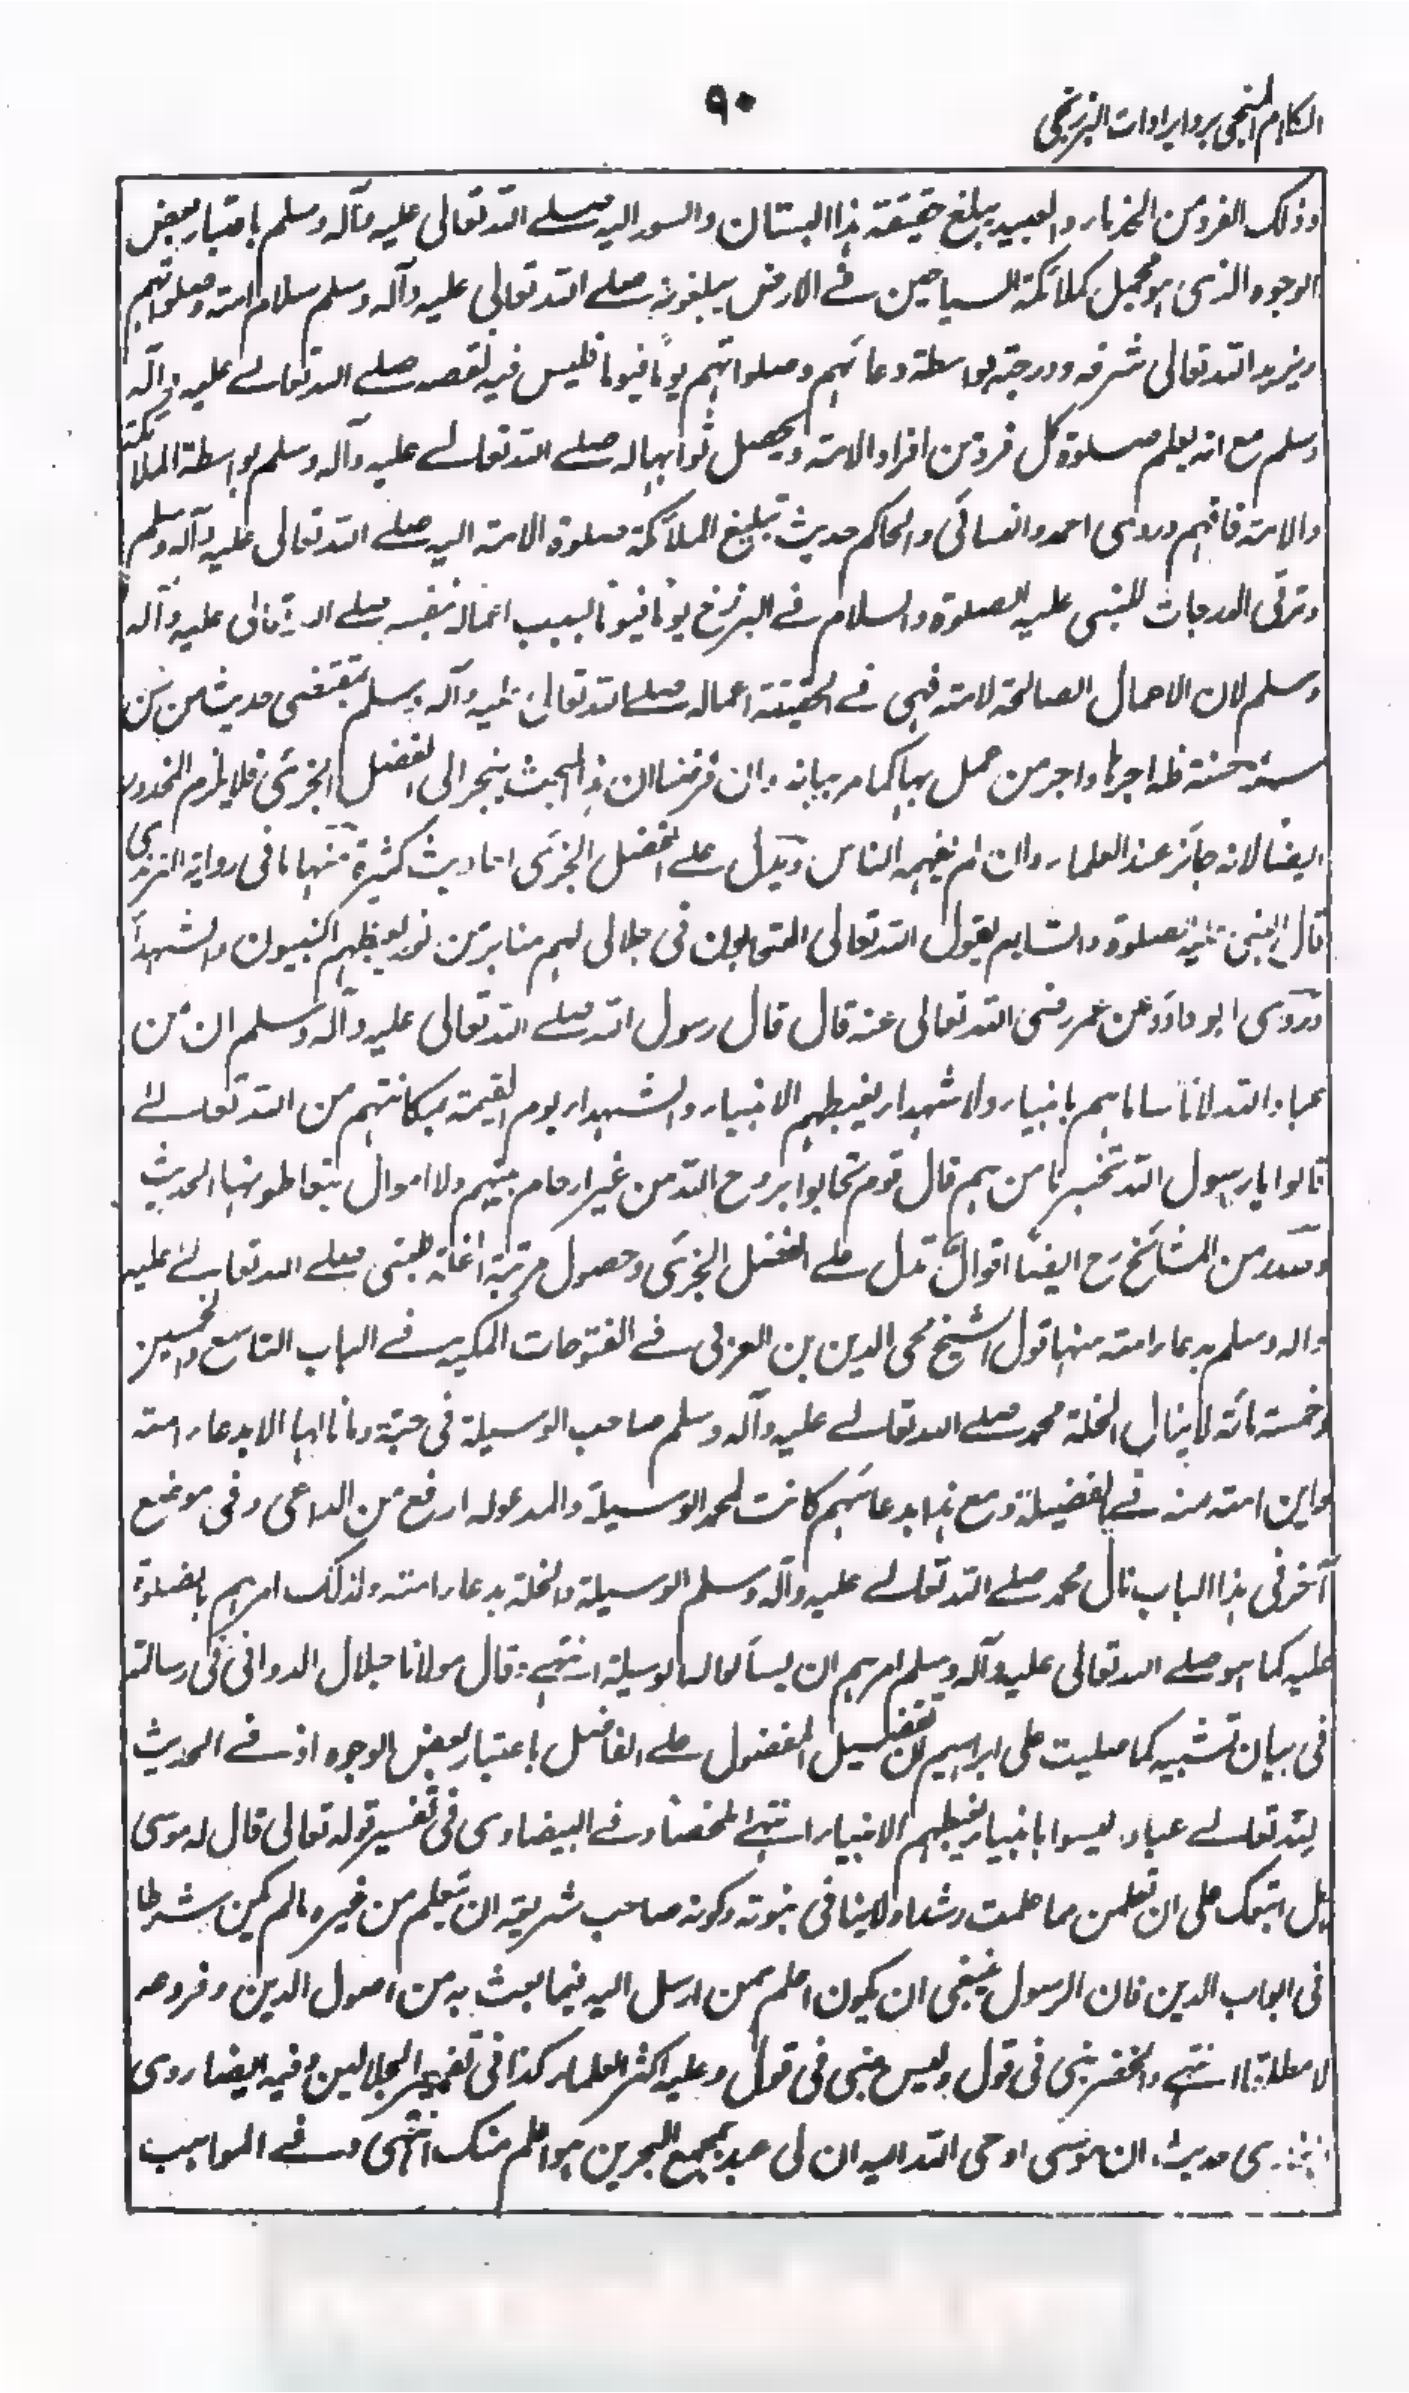 الكلام المنجى برد ايرادات البرزنجى
٩٠
وذلك الفرد من الخدماء والعبيد يبلغ حقيقة هذا البستان والسور اليه صلى الله تعالى عليه وآله وسلم باعتبار بعض
الوجوه الذى هو مجمل كملائكة السياحين فى الارض يبلغونه صلى الله تعالى عليه وآله وسلم سلام امته وصلواتهم
ويزيد الله تعالى شرفه ودرجته بواسطة دعائهم وصلواتهم يومًا فيومًا فليس فيه نقصه صلى الله تعالى عليه وآله
وسلم مع انه يعلم صلوة كل فرد من افراد الامة ويحصل ثوابها له صلى الله تعالى عليه وآله وسلم بواسطة الملائكة
والامة فافهم وروى احمد والنسائى والحاكم حديث تبليغ الملائكة صلوة الامة اليه صلى الله تعالى عليه وآله وسلم
وترقى الدرجات للنبى عليه الصلوة والسلام فى البرزخ يومًا فيومًا بسبب اعماله بنفسه صلى الله تعالى عليه وآله
وسلم لان الاعمال الصالحة لامته فهى فى الحقيقة اعماله صلى الله تعالى عليه وآله وسلم بمقتضى حديث من سن
سنة حسنة فله اجرها واجر من عمل بها كما مر بيانه وان فرضنا ان هذا البحث ينجر الى الفضل الجزئى فلا يلزم المحذور
ايضا لانه جائز عند العلماء وان لم يفهمه الناس ويدل على الفضل الجزئى احاديث كثيرة منها ما فى رواية الترمذى
قال النبى عليه الصلوة والسلام يقول الله تعالى المتحابون فى جلالى لهم منابر من نور يغبطهم النبيون والشهداء
وروى ابو داؤد عن عمر رضى الله تعالى عنه قال قال رسول الله صلى الله تعالى عليه وآله وسلم ان من
عباد الله لاناسا ما هم بانبياء ولا شهداء يغبطهم الانبياء والشهداء يوم القيمة بمكانتهم من الله تعالى
قالوا يا رسول الله تخبرنا من هم قال قوم تحابوا بروح الله من غير ارحام بينهم ولا اموال يتعاطونها الحديث
وصدر من المشائخ رح ايضًا اقوال تدل على الفضل الجزئى وحصول مرتبة الخلة للنبى صلى الله تعالى عليه
واله وسلم بدعاء امته منها قول الشيخ محى الدين بن العربى فى الفتوحات المكية فى الباب التاسع والخمسين
وخمسمائة لا ينال الخلة محمد صلى الله تعالى عليه وآله وسلم صاحب الوسيلة فى جنة وما نالها الا بدعاء امته
واين امته منه فى الفضيلة ومع هذا بدعائهم كانت لمحمد الوسيلة والمدعو له ارفع من الداعى وفى موضع
آخر فى هذا الباب نال محمد صلى الله تعالى عليه وآله وسلم الوسيلة والخلة بدعاء امته ولذلك امرهم بالصلوة
عليه كما هو صلى الله تعالى عليه وآله وسلم امرهم ان يسألوا له الوسيلة انتهى وقال مولانا جلال الدوانى فى رسالته
فى بيان تشبيه كما صليت على ابراهيم ان تفضيل المفضول على الفاضل باعتبار بعض الوجوه اذ فى الحديث
لله تعالى عباد ليسوا بانبياء يغبطهم الانبياء انتهى ملخصًا وفى البيضاوى فى تفسير قوله تعالى قال له موسى
هل اتبعك على ان تعلمن مما علمت رشدا ولا ينافى نبوته وكونه صاحب شريعة ان يتعلم من غيره ما لم يكن شرطا
فى ابواب الدين فان الرسول ينبغى ان يكون اعلم ممن ارسل اليه فيما بعث به من اصول الدين وفروعه
لا مطلقا انتهى والخضر نبى فى قول وليس بنبى فى قول وعليه اكثر العلماء كذا فى تفسير الجلالين وفيه ايضا روى
البخارى حديث ان موسى اوحى الله اليه ان لى عبد بمجمع البحرين هو اعلم منك انتهى وفى المواهب